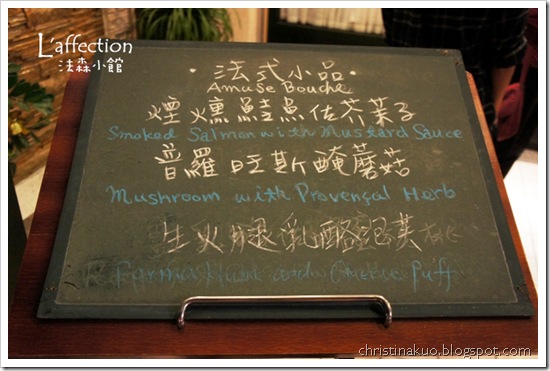 L'affection
法森小館
·法式小品·
Amuse Bouche
煙燻鮭魚佐芥茉子
Smoked Salmon with Mustard Sauce
普羅旺斯醃蘑菇
Mushroom with Provençal Herb
生火腿乳酪泡芙
Parma Ham and Cheese Puff
christinakuo.blogspot.com